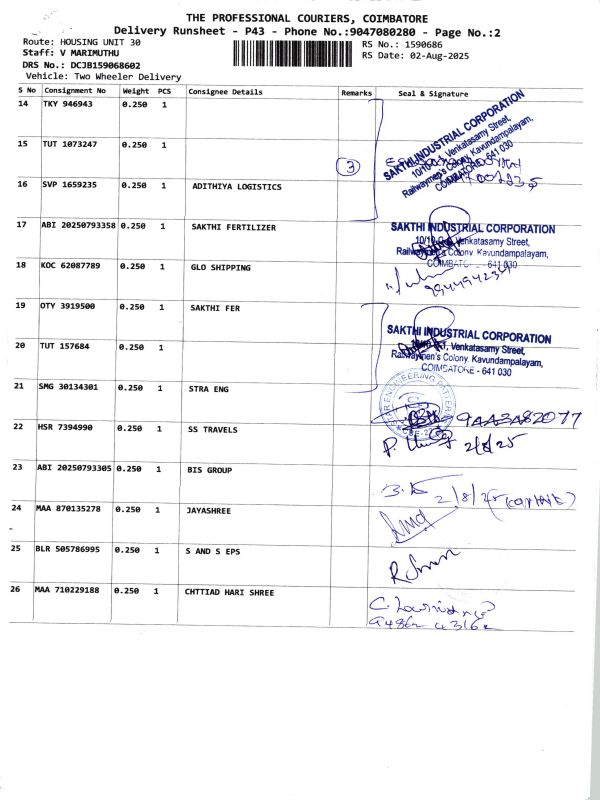 THE PROFESSIONAL COURIERS, COIMBATORE
Delivery Runsheet - P43 - Phone No.:9047080280 - Page No.:2
Route: HOUSING UNIT 30
RS No.: 1590686
Staff: V MARIMUTHU
RS Date: 02-Aug-2025
DRS No.: DCJB159068602
Vehicle: Two Wheeler Delivery
S No Consignment No Weight PCS Consignee Details Remarks Seal & Signature
14 TKY 946943 0.250 1
15 TUT 1073247 0.250 1
3
SAKTHI INDUSTRIAL CORPORATION
Venkatasamy Street,
Railwaymen's Colony, Kavundampalayam,
COIMBATORE - 641 030
16 SVP 1659235 0.250 1 ADITHIYA LOGISTICS
17 ABI 20250793358 0.250 1 SAKTHI FERTILIZER
SAKTHI INDUSTRIAL CORPORATION
Venkatasamy Street,
Railwaymen's Colony, Kavundampalayam,
COIMBATORE - 641 030
18 KOC 62087789 0.250 1 GLO SHIPPING
19 OTY 3919500 0.250 1 SAKTHI FER
SAKTHI INDUSTRIAL CORPORATION
Venkatasamy Street,
Railwaymen's Colony, Kavundampalayam,
COIMBATORE - 641 030
20 TUT 157684 0.250 1
21 SMG 30134301 0.250 1 STRA ENG
22 HSR 7394990 0.250 1 SS TRAVELS
2/8/25
23 ABI 20250793305 0.250 1 BIS GROUP
2/8/25
24 MAA 870135278 0.250 1 JAYASHREE
25 BLR 505786995 0.250 1 S AND S EPS
26 MAA 710229188 0.250 1 CHTTIAD HARI SHREE